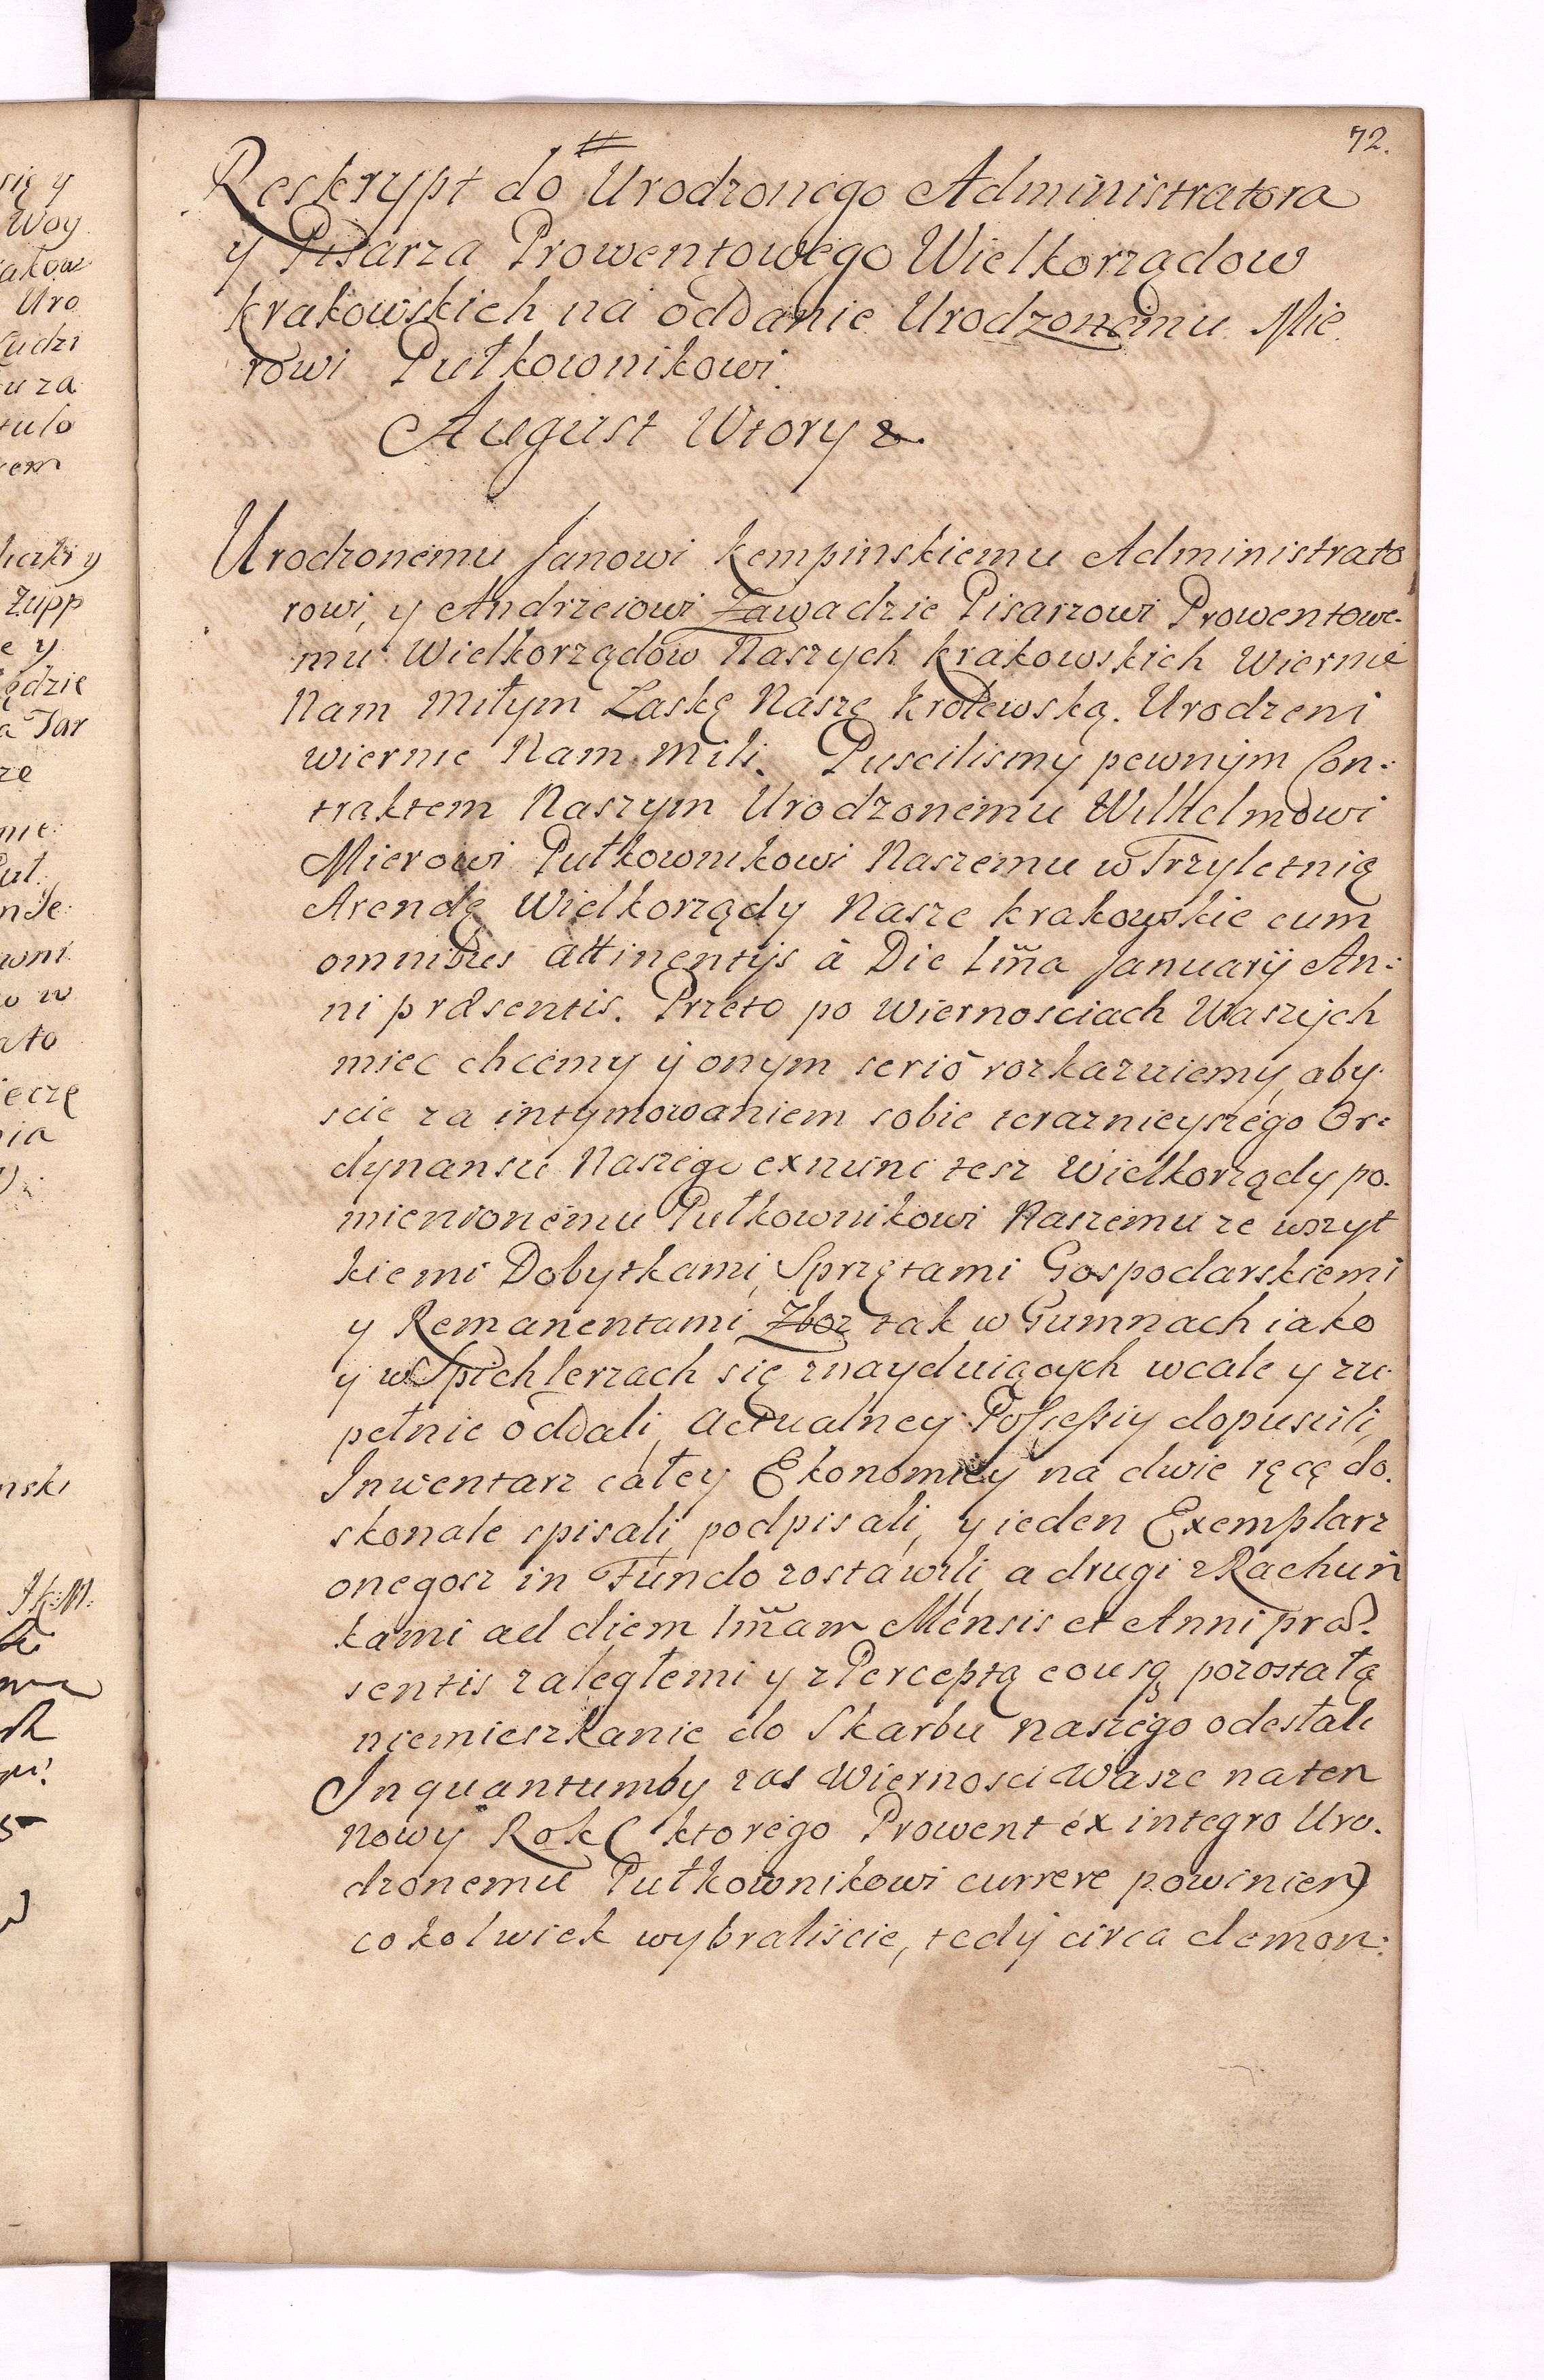 się y
Woy
Uro
udzi
u za
tulo
iem
Zupp
e y
ędzie
a Tar
ze
nie
nski
72.
Reskrypt do Urodzonego Administratora
y Pisarza Prowentowego Wielkorządow
Krakowskich na oddanie Urodzonemu Mie
rowi Pułkownikowi.
August Wtory &.
Urodzonemu Janowi Kempinskiemu Administrato
rowi, y Andrzeiowi Zawadzie Pisarzowi Prowentowe-
mu Wielkorządow Naszych Krakowskich Wiernie
Nam Miłym Łaskę Naszę Krolewską. Urodzeni
wiernie Nam Mili. Puscilismy pewnym Con:
traktem Naszym Urodzonemu Wilhelmowi
Mierowi Pułkownikowi Naszemu w Trzyletnią
Arendę Wielkorządy Nasze Krakowskie cum
omnibus attinentijs à Die 1ma Januarij An:
ni præsentis. Przeto po Wiernosciach Waszych
miec chcemy y onym serio rozkazuiemy, aby
scie za intymowaniem sobie teraznieyszego Or:
dynansu Naszego exnunc tesz Wielkorządy po.
mienionemu Pułkownikowi Naszemu ze wszyt
kiemi Dobytkami, Sprzętami Gospodarskiemi
y Remanentami Zboz tak w Gumnach iako
y w Spichlerzach się znayduiących wcale y zu
pełnie oddali, actualney Possessiy dopuscili,
Inwentarz całey Ekonomiey na dwie ręcę do.
skonale spisali, podpisali, y ieden Exemplarz
onegosz in Fundo zostawili, a drugi z Rachun
kami ad diem 1mam Mensis et Anni præ
sentis zaległemi y z Perceptą eousq pozostałą
niemieszkanie do Skarbu naszego odesłali
Inquantumby zas Wiernosci Wasze na ten
Nowy Rok ( ktorego Prowent ex integro Uro.
dzonemu Pułkownikowi currere powinien)
cokolwiek wybraliscie, tedy circa demon: